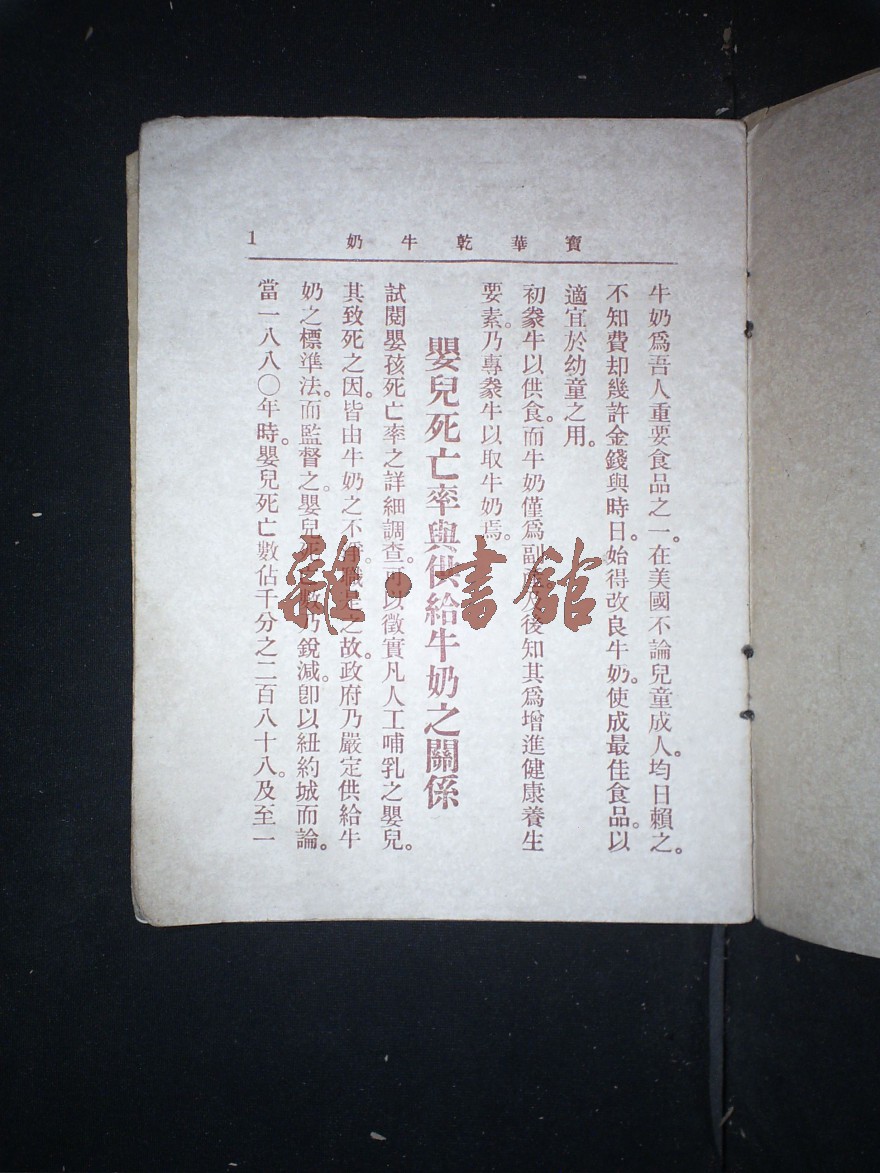 寶華乾牛奶 1
牛奶爲吾人重要食品之一。在美國不論兒童成人。均日賴之。
不知費却幾許金錢與時日。始得改良牛奶。使成最佳食品。以
適宜於幼童之用。
初豢牛以供食。而牛奶僅爲副 後知其爲增進健康養生
要素。乃專豢牛以取牛奶焉。
嬰兒死亡率與供給牛奶之關係
試閱嬰孩死亡率之詳細調查。可以徵實凡人工哺乳之嬰兒。
其致死之因。皆由牛奶之不 之故。政府乃嚴定供給牛
奶之標準法。而監督之。嬰兒 數乃銳減。卽以紐約城而論。
當一八八〇年時。嬰兒死亡數佔千分之二百八十八。及至一
雜·書館